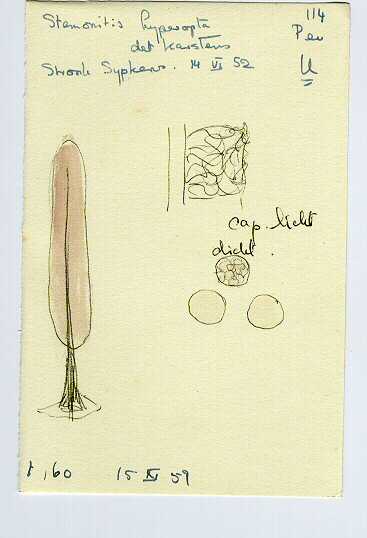 Stemonitis hyperopta
det Karstens
Stronk Sypkens. 14 VI 52
114
Pen
U
cap. licht
dicht.
1,60 15 IX 59